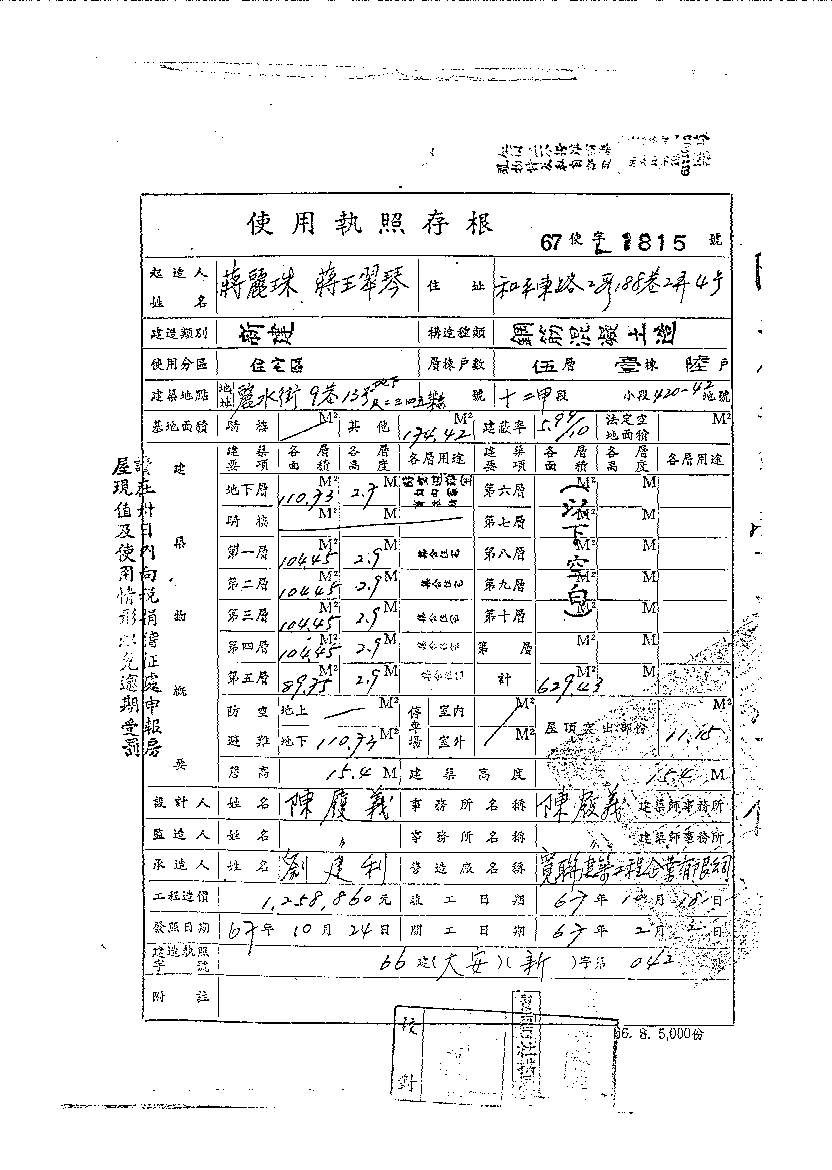 使用執照存根
67 使字 1815 號
起造人姓名 蔣麗珠 蔣王翠琴 住址 和平東路2段188巷2弄4号
建造類別 新建 構造種類 鋼筋混凝土造
使用分區 住宅區 層棟戶數 伍層 壹棟 陸戶
建築地點 地址 麗水街9巷13号 號 十二甲段 小段 420-42 地號
基地面積 騎樓 M² 其他 174.42 M² 建蔽率 5.99/10 法定空地面積 M²
建築概要 建築要項 各層面積 各層高度 各層用途 建築要項 各層面積 各層高度 各層用途
地下層 110.73 M² 2.7 M 第六層 (以下空白) M² M
騎樓 M² M 第七層 M² M
第一層 104.45 M² 2.9 M 第八層 M² M
第二層 104.45 M² 2.9 M 第九層 M² M
第三層 104.45 M² 2.9 M 第十層 M² M
第四層 104.45 M² 2.9 M 第 層 M² M
第五層 89.75 M² 2.9 M 計 629.43 M² M
防空 地上 M² 停車場 室內 M² 屋頂突出部份 11.15 M²
避難 地下 110.73 M² 室外 M²
簷高 15.4 M 建築高度 15.4 M
設計人 姓名 陳履義 事務所名稱 陳履義 建築師事務所
監造人 姓名 〃 事務所名稱 〃 建築師事務所
承造人 姓名 劉建利 營造廠名稱 寬聯建築工程企業有限公司
工程造價 1,258,860元 竣工日期 67年10月18日
發照日期 67年10月24日 開工日期 67年2月2日
建造執照字號 66建(大安)(新)字第042號
附註
核對
66. 8. 5,000份